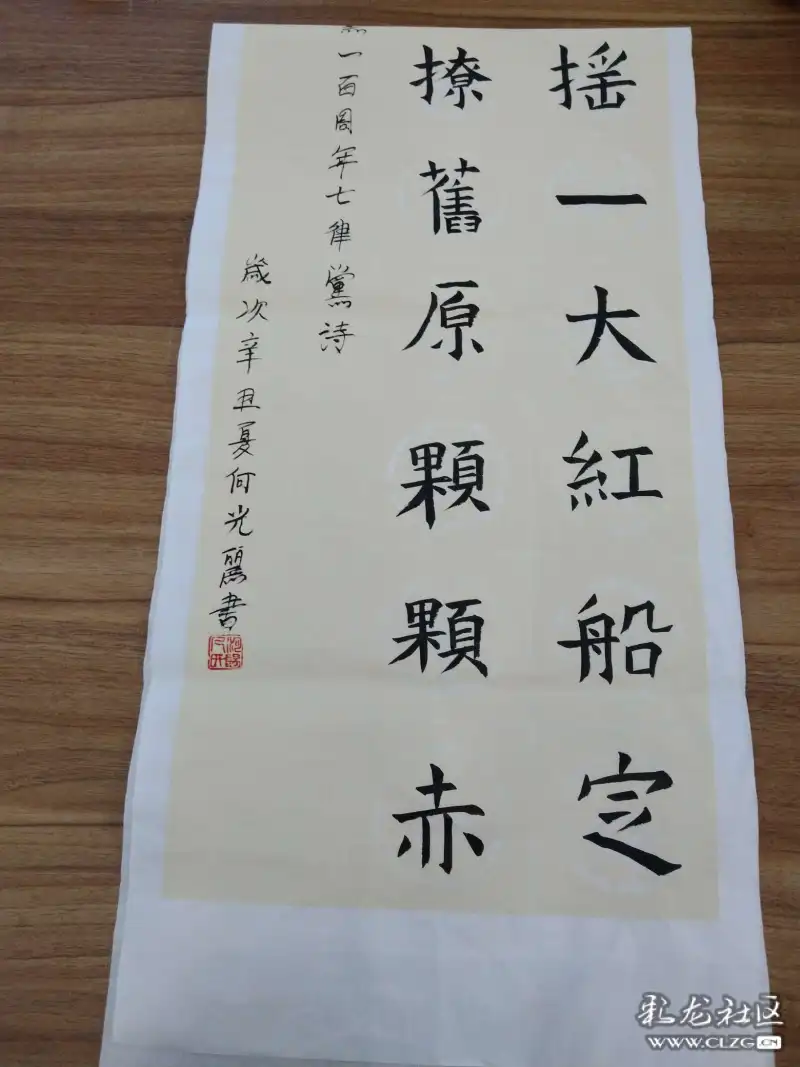 摇一大紅船定
撩舊原顆顆赤
一百周年七律黨詩
歲次辛丑夏何光麗書
彩龙社区
WWW.CLZG.CN